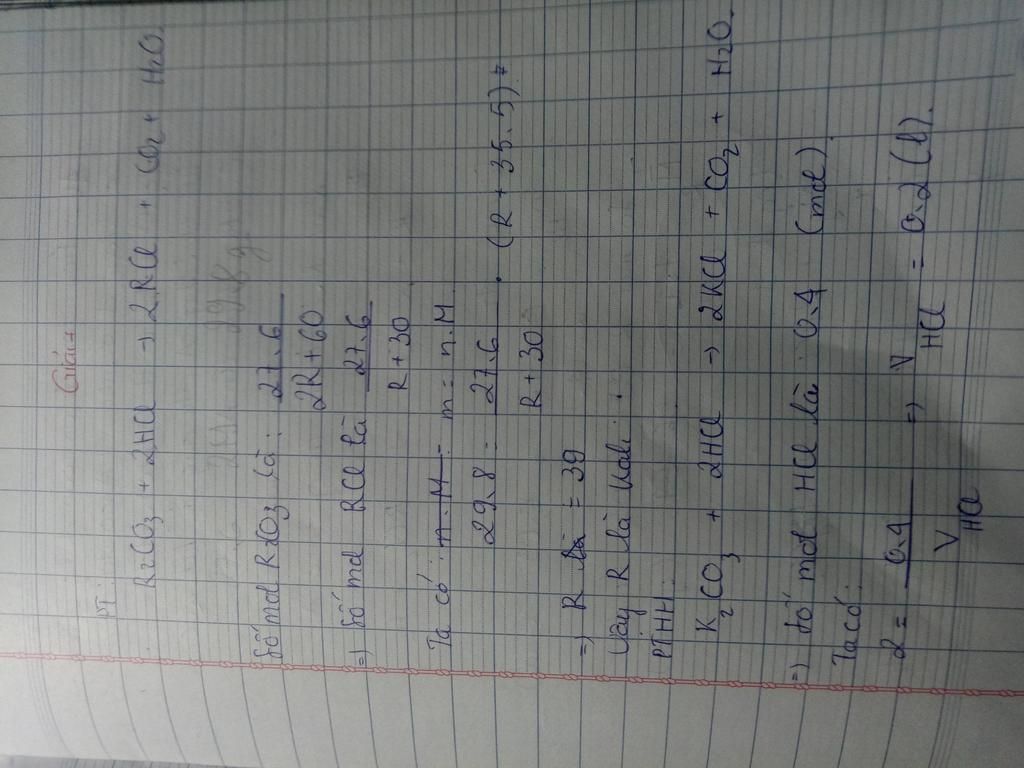 Giải
PT:
R2CO3 + 2HCl → 2RCl + CO2 + H2O.
Số mol R2CO3 là: 27.6 / 2R+60
=) Số mol RCl là 27.6 / R+30
Ta có: m = n.M
29.8 = 27.6 / R+30 . (R + 35.5)
=) R = 39
Vậy R là Kali.
PTHH:
K2CO3 + 2HCl → 2KCl + CO2 + H2O.
=) Số mol HCl là: 0.4 (mol)
Ta có:
2 = 0.4 / V HCl =) V HCl = 0.2 (l).